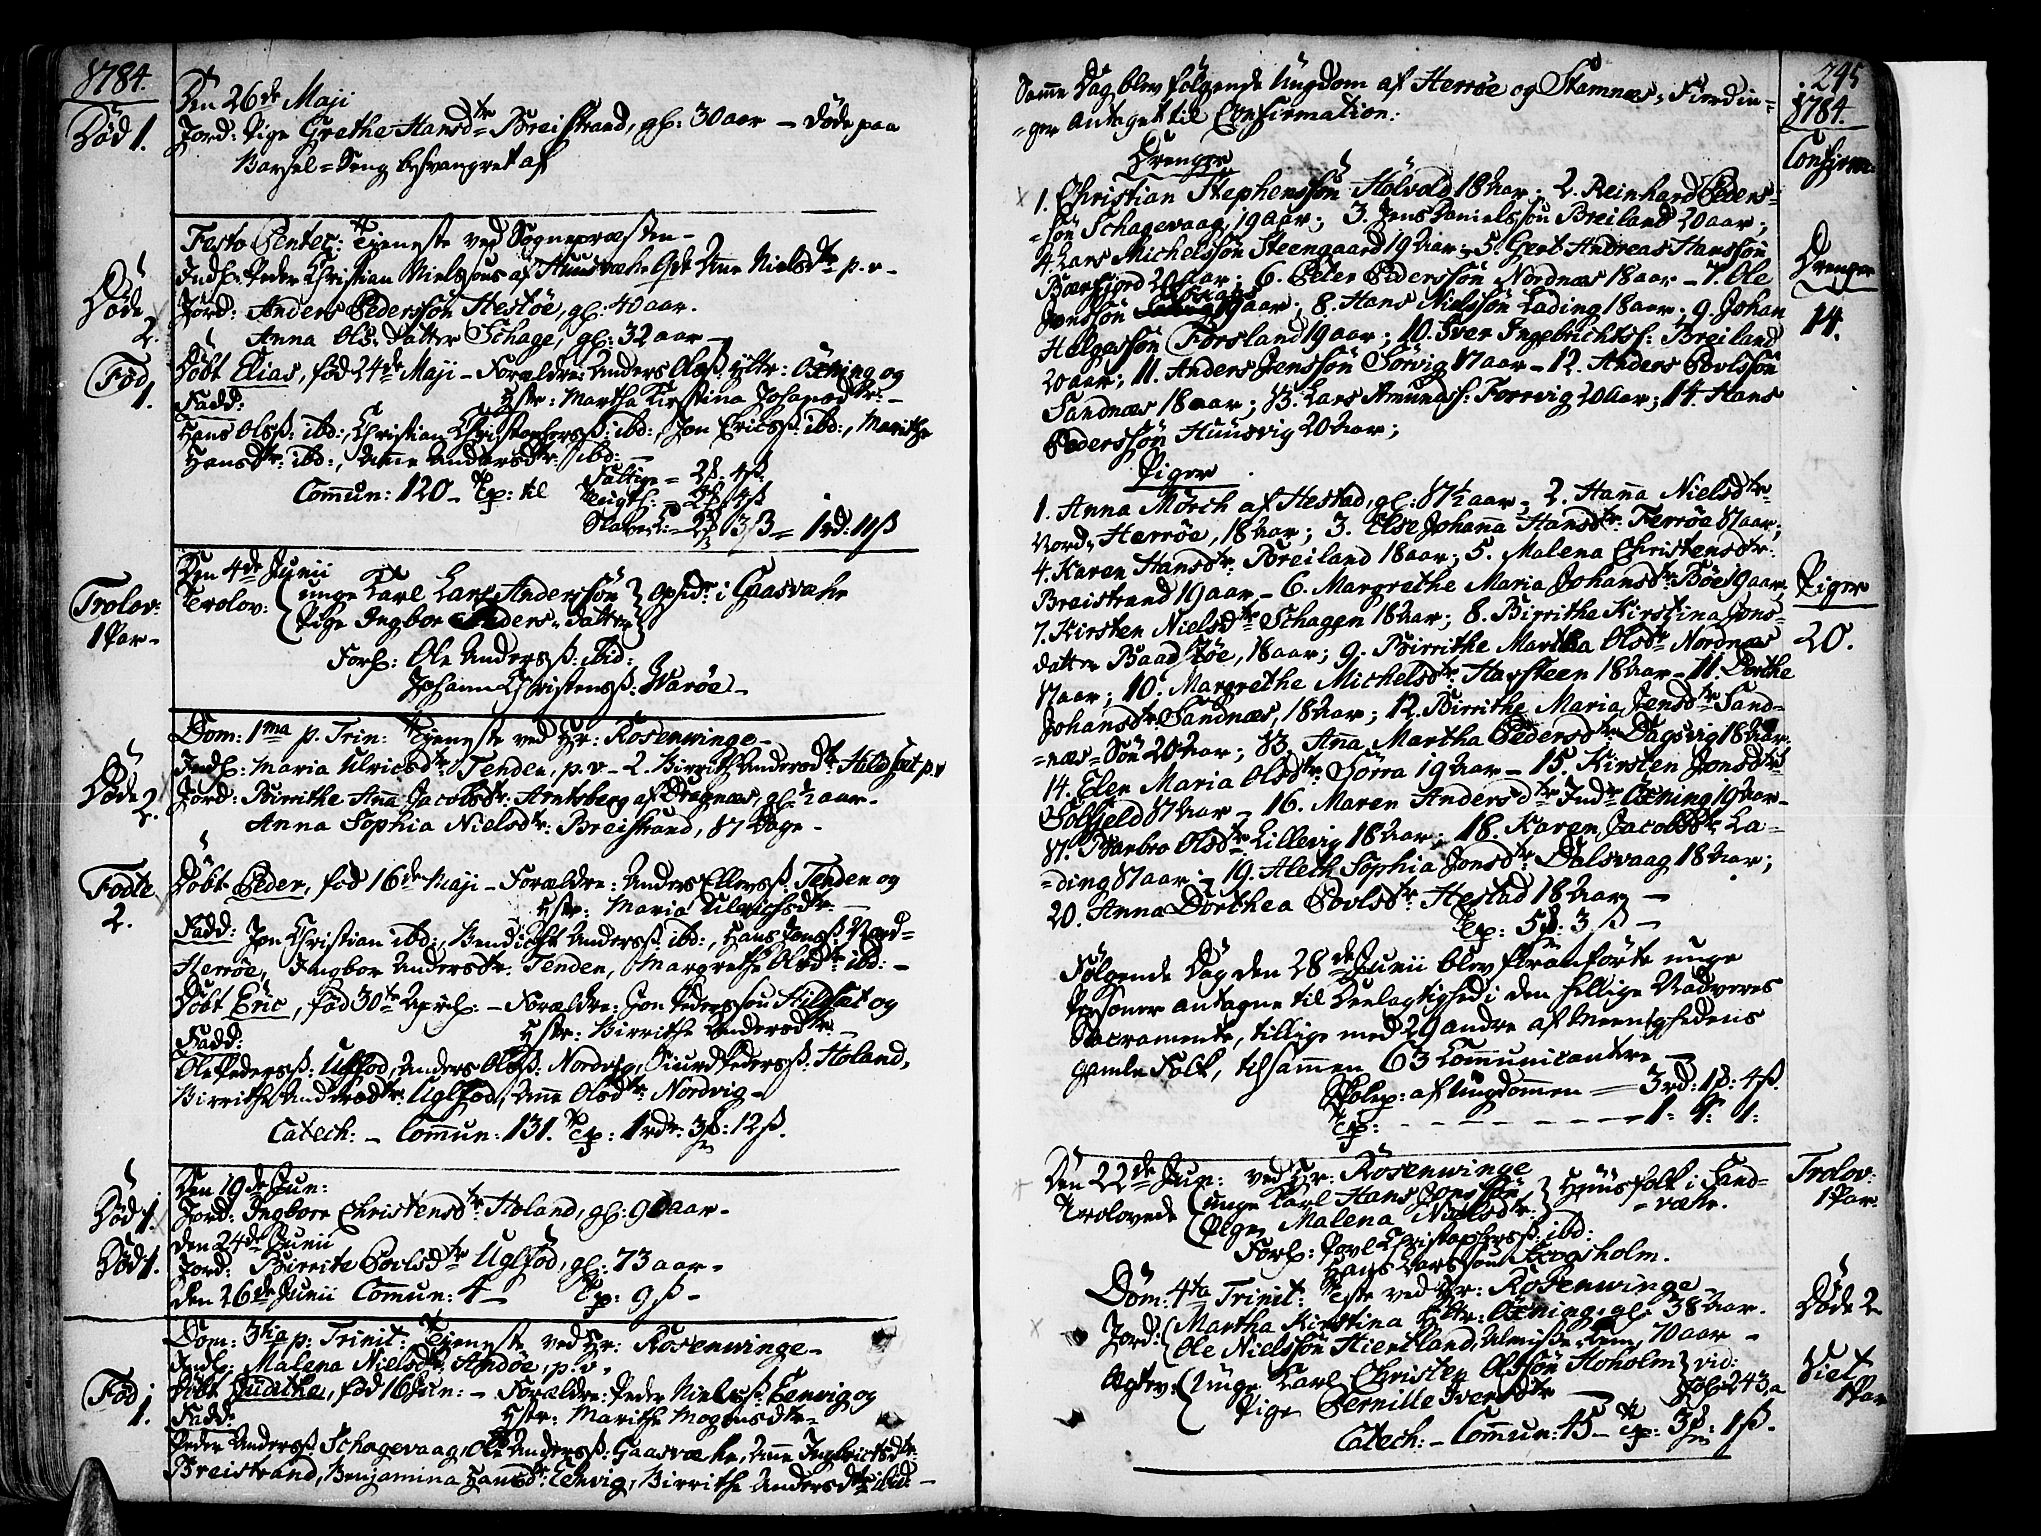 1784.
Død 1.
Den 26de Maji
Jord: Pige Grethe Hansdtr Breistrand, gl: 30 aar - døde paa
Barsel-Seng besvangret af
Festo Pentec: Tjeneste ved Sognepræsten -
Indl: Peder Christian Nielssøns af Huusvæhr Anne Nielsdtr p. v -
Døde 2.
Jord: Anders Pedersøn Hestøe, gl: 40 aar.
Anna Ols-datter Schage, gl: 32 aar -
Fød 1.
Døbt Elias, fød 24de Maji - Forældre: Anders Olsß. Hltr: Oxning og
Fadd: Hstr: Martha Kirstina Johansdtr: -
Hans Olsß: ibd:, Christian Christophersß: ibd:, Jon Ericsß: ibd:, Marithe
Hansdtr: ibd:, Anne Andersdtr: ibd: -
Commun: 120 - Tp: til Fattige = 2ß: 4ß
= 2ß: 4ß
Slaver = 1rd: 11ß
Trolov: 1 Par -
Den 4de Junii
Trolov: unge Karl Lars Anderssøn
Pige Ingbor Anders-Datter } Opsidr i Gaasvæhr
Forl: Ole Andersß: ibid:
Johann Christensß: Warøe -
Dom: 1ma p. Trin: Tjeneste ved Hr: Rosenwinge -
Indl: Maria Ulricsdtr Tenden, p. v - 2. Birrithe Andersdtr Hildset p. v
Døde 2.
Jord: Birrithe Anna Jacobsdtr. Arntsberg af Dragnæs, gl: ½ aar -
Anna Sophia Nielsdtr: Breistrand, 17 Dage -
Fødte 2.
Døbt Peder, fød 16de Maji - Forældre: Anders Ellingsß: Tenden og
Hstr: Maria Ulrichsdtr: -
Fadd: Jon Christian ibd:, Bendicht Andersß: ibd:, Hans Jonsß: Nord-
Herrøe, Ingbor Andersdtr: Tenden, Margrethe Olsdtr: ibd: -
Døbt Eric, fød 30te April: - Forældre: Jon Pederssøn Hildset og
Fadd: Hstr: Birrithe Andersdtr: -
Ole Pedersß: Uglsød, Anders Olsß: Nordvig, Siurd Pedersß: Holand,
Birrithe Andersdtr: Uglsød, Anne Olsdtr: Nordvig -
Catech: - Commun: 131. Tp: 1rdr: 3ß: 12ß.
Død 1.
Den 19de Jun:
Jord: Ingborr Christensdtr Holand, gl: 90 aar -
Død 1.
Den 24de Junii
Jord: Birrite Povlsdtr Uglsød, gl: 73 aar -
Den 26de Junii Commun: 4 - Tp: 9ß -
Dom: 3tia p: Trinit: Tjeneste ved Hr: Rosenwinge -
Indl: Malena Nielsdtr: Andøe, p: v,
Fød 1.
Døbt Judithe, fød 16 Jun: - Forældre: Peder Nielsß: Eenvig og
Fadd: Hstr: Marithe Mogensdtr -
Peder Andersß: Schagevaag, Ole Andersß: Gaasvæhr, Anne Ingbrictsdtr:
Breistrand, Benjamina Hansdtr: Eenvig, Birrithe Andersdtr: ibid: -
245
1784.
Confirm:
Samme Dag blev følgende Ungdom af Herrøe og Stamnes-Fierdin-
-ger antaget til Confirmation:
Drenger
14.
Drenger
1. Christian Stephenssøn Holvold 18 Aar; 2. Reinhard Peders-
-søn Schagevaag 19 aar; 3. Jens Danielssøn Breiland 20 aar;
4. Lars Michelssøn Steengaard 19 Aar; 5. Gert Andreas Hanssøn
Bærfjord 20 aar; 6. Peter Pederssøn Nordnæs 18 aar - 7. Ole
Jonssøn 19 aar; 8. Hans Nielssøn Lading 18 aar; 9. Johan
Helgessøn Forsland 19 aar; 10. Iver Ingebrichtsß: Breiland
20 aar; 11. Anders Jenssøn Sørvig 17 aar - 12. Anders Povlssøn
Sandnæs 18 aar; 13. Lars Amundsß: Forrvig 20 Aar; 14. Hans
Pederssøn Huusvig 20 Aar;
Piger
20.
Piger
1. Anna Mørch af Hestad, gl: 17½ aar - 2. Hanna Nielsdtr
Nord-Herrøe, 18 Aar; 3. Else Johana Hansdtr. Ferrøe 17 aar;
4. Karen Hansdtr: Breiland 18 aar; 5. Malena Christensdtr:
Breistrand 19 aar - 6. Margrethe Maria Johansdtr: Bøe 19 aar
7. Kirsten Nielsdtr Schagen 18 Aar; 8. Birrithe Kirstina Jons-
datter Baadstøe, 18 aar; 9. Birrithe Martha Olsdtr Nordnæs
17 aar; 10. Margrethe Michelsdtr: Harsteen 18 Aar - 11. Dorthe
Johansdtr. Sandnæs, 18 Aar; 12. Birrithe Maria Jensdtr Sand-
-næs-Søn 20 Aar; 13. Anna Martha Pedersdtr Dagsvig 18 Aar
14. Elen Maria Olsdtr: Sørra 19 Aar - 15. Kirsten Jonsdtr
Solfjeld 17 Aar - 16. Maren Andersdtr Indr Oxning 19 Aar -
17. Olsdtr Lillevig 18 Aar; 18. Karen Jacobsdtr La-
-ding 17 aar; 19. Aleth Sophia Jonsdtr: Dalsvaag 18 Aar;
20. Anna Dorthea Povlsdtr: Hestad 18 Aar -
Tp: 5ß: 3ß -
Følgende Dag den 28de Junii blev foranførte unge
Personer antagne til Deelagtighed i den hellige Nadveres
Sacramente, tillige med 29 andre af Meenighedens
gamle Folk, tilsammen 63 Communicantere -
Skolep: af Ungdommen = 3rd: 1ß: 4ß.
Tp: - - - - - - 1: 9: 1:
Trolov: 1 Par.
Den 22de Jun: ved Hr: Rosenwinge
Trolovede unge Karl Hans Jonssøn
Pige Malena Nielsdtr } Huusfolk i Sand-
-væhr.
Forl: Povl Christophersß: ibd:
Hans Larssøn
Dom: 4ta Trinit: Tjeste ved Hr: Rosenwinge -
Døde 2
Jord: Martha Kirstina Hltr: Oxning, gl: 38 Aar.
Ole Nielssøn Hiertland, Almisse-Lem, 70 aar -
Viet 1 Par
Egtev: Unge Karl Christen Olssøn Hoholm } vid:
Pige Pernille Iversdtr - } fol: 243, a
Catech: - Commun: 45 - Tp: 3ß: 1ß.